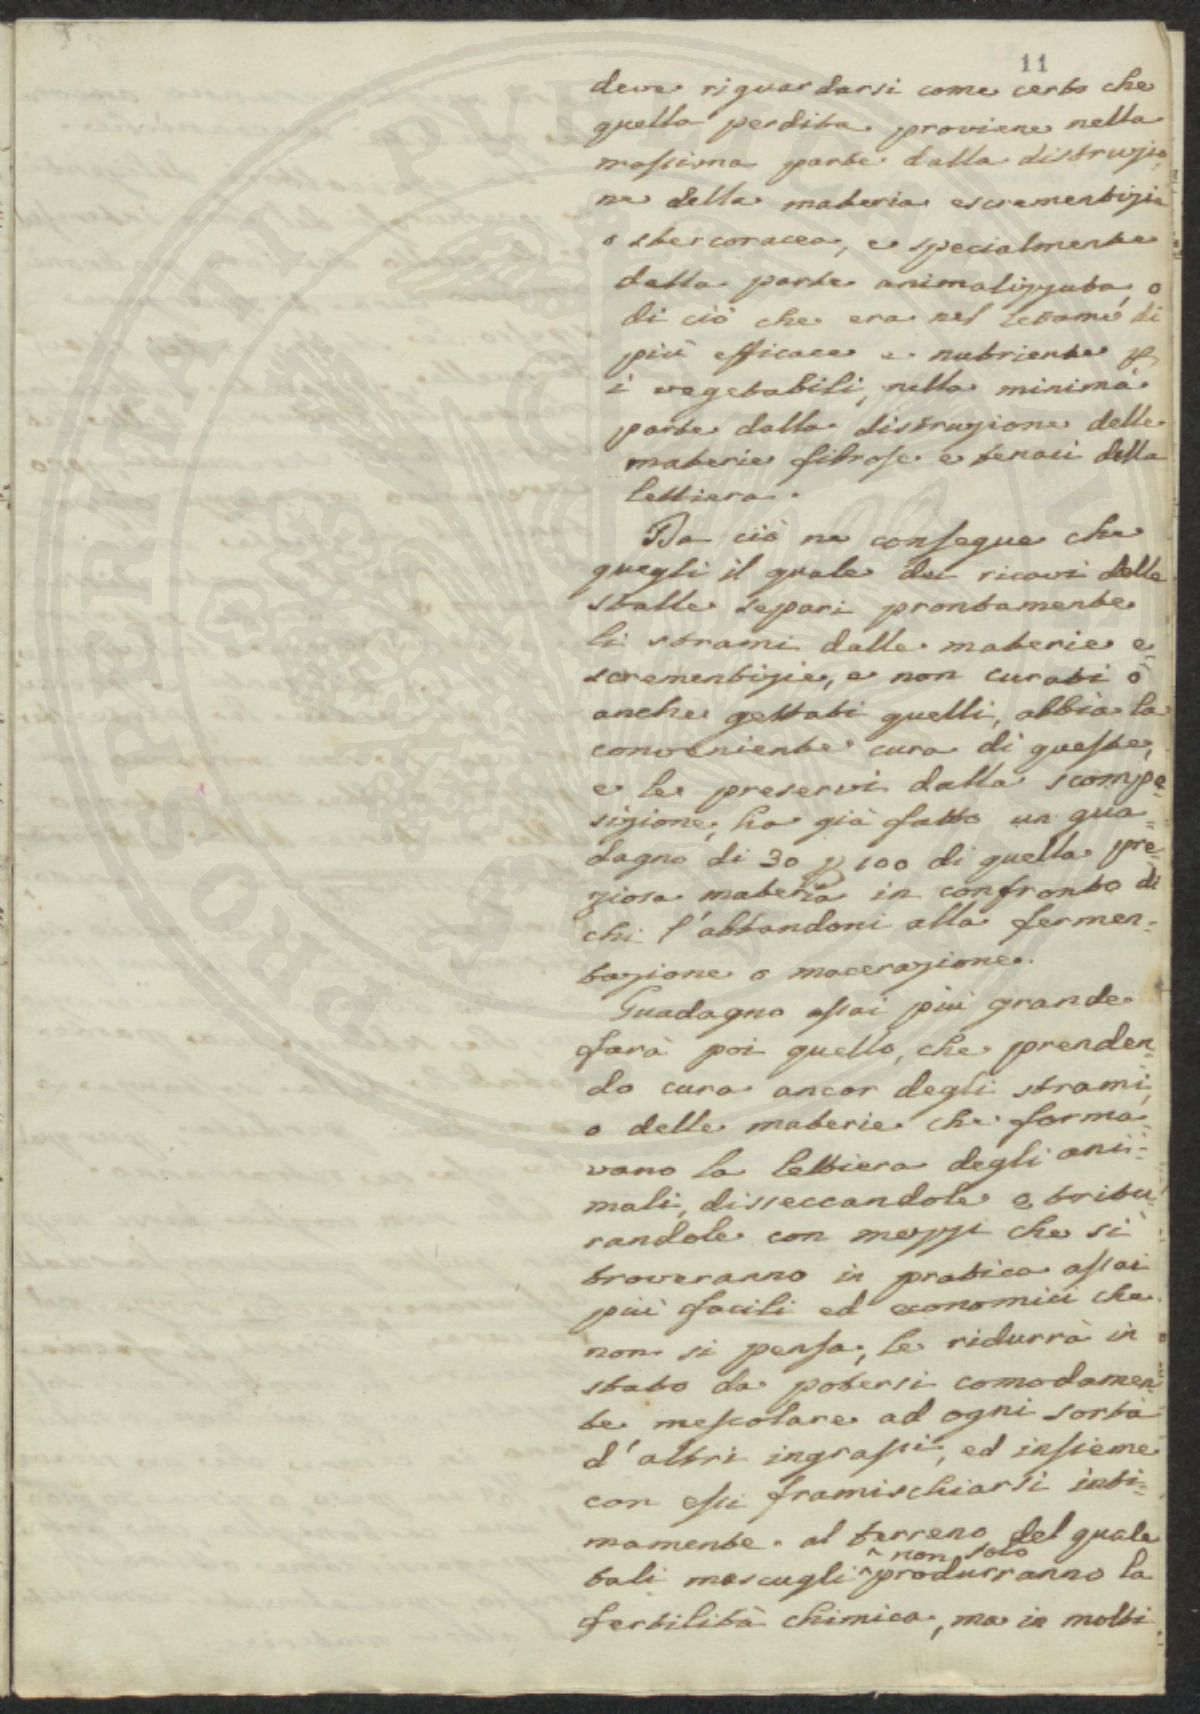 11
deve riguardarsi come certo che
quella perdita proviene nella
massima parte dalla distruzio-
ne della materia escrementizia
o stercoracea, e specialmente
dalla parte animalizzata, o
di ciò che era nel letame di
più efficace e nutriente p
i vegetabili, nella minima
parte dalla distruzione delle
materie fibrose e tenaci della
lettiera.
Da ciò ne consegue che
quegli il quale dei ricavi delle
stalle separi prontamente
li strami dalle materie e-
scrementizie, e non curati o
anche gettati quelli, abbia la
conveniente cura di queste,
e le preservi dalla scompo-
sizione, ha già fatto un gua-
dagno di 30 p 100 di quella pre-
ziosa materia in confronto di
chi l'abbandoni alla fermen-
tazione o macerazione.
Guadagno assai più grande
farà poi quello, che prenden-
do cura ancor degli strami,
o delle materie che forma-
vano la lettiera degli ani-
mali, disseccandole e tritu-
randole con mezzi che si
troveranno in pratica assai
più facili ed economici che
non si pensa, le ridurrà in
stato da potersi comodamen-
te mescolare ad ogni sorta
d'altri ingrassi, ed insieme
con essi framischiarsi inti-
mamente al terreno del quale
non solo
tali mescugli produrranno la
fertilità chimica, ma in molti
PROSPERITATI PVBLICAE